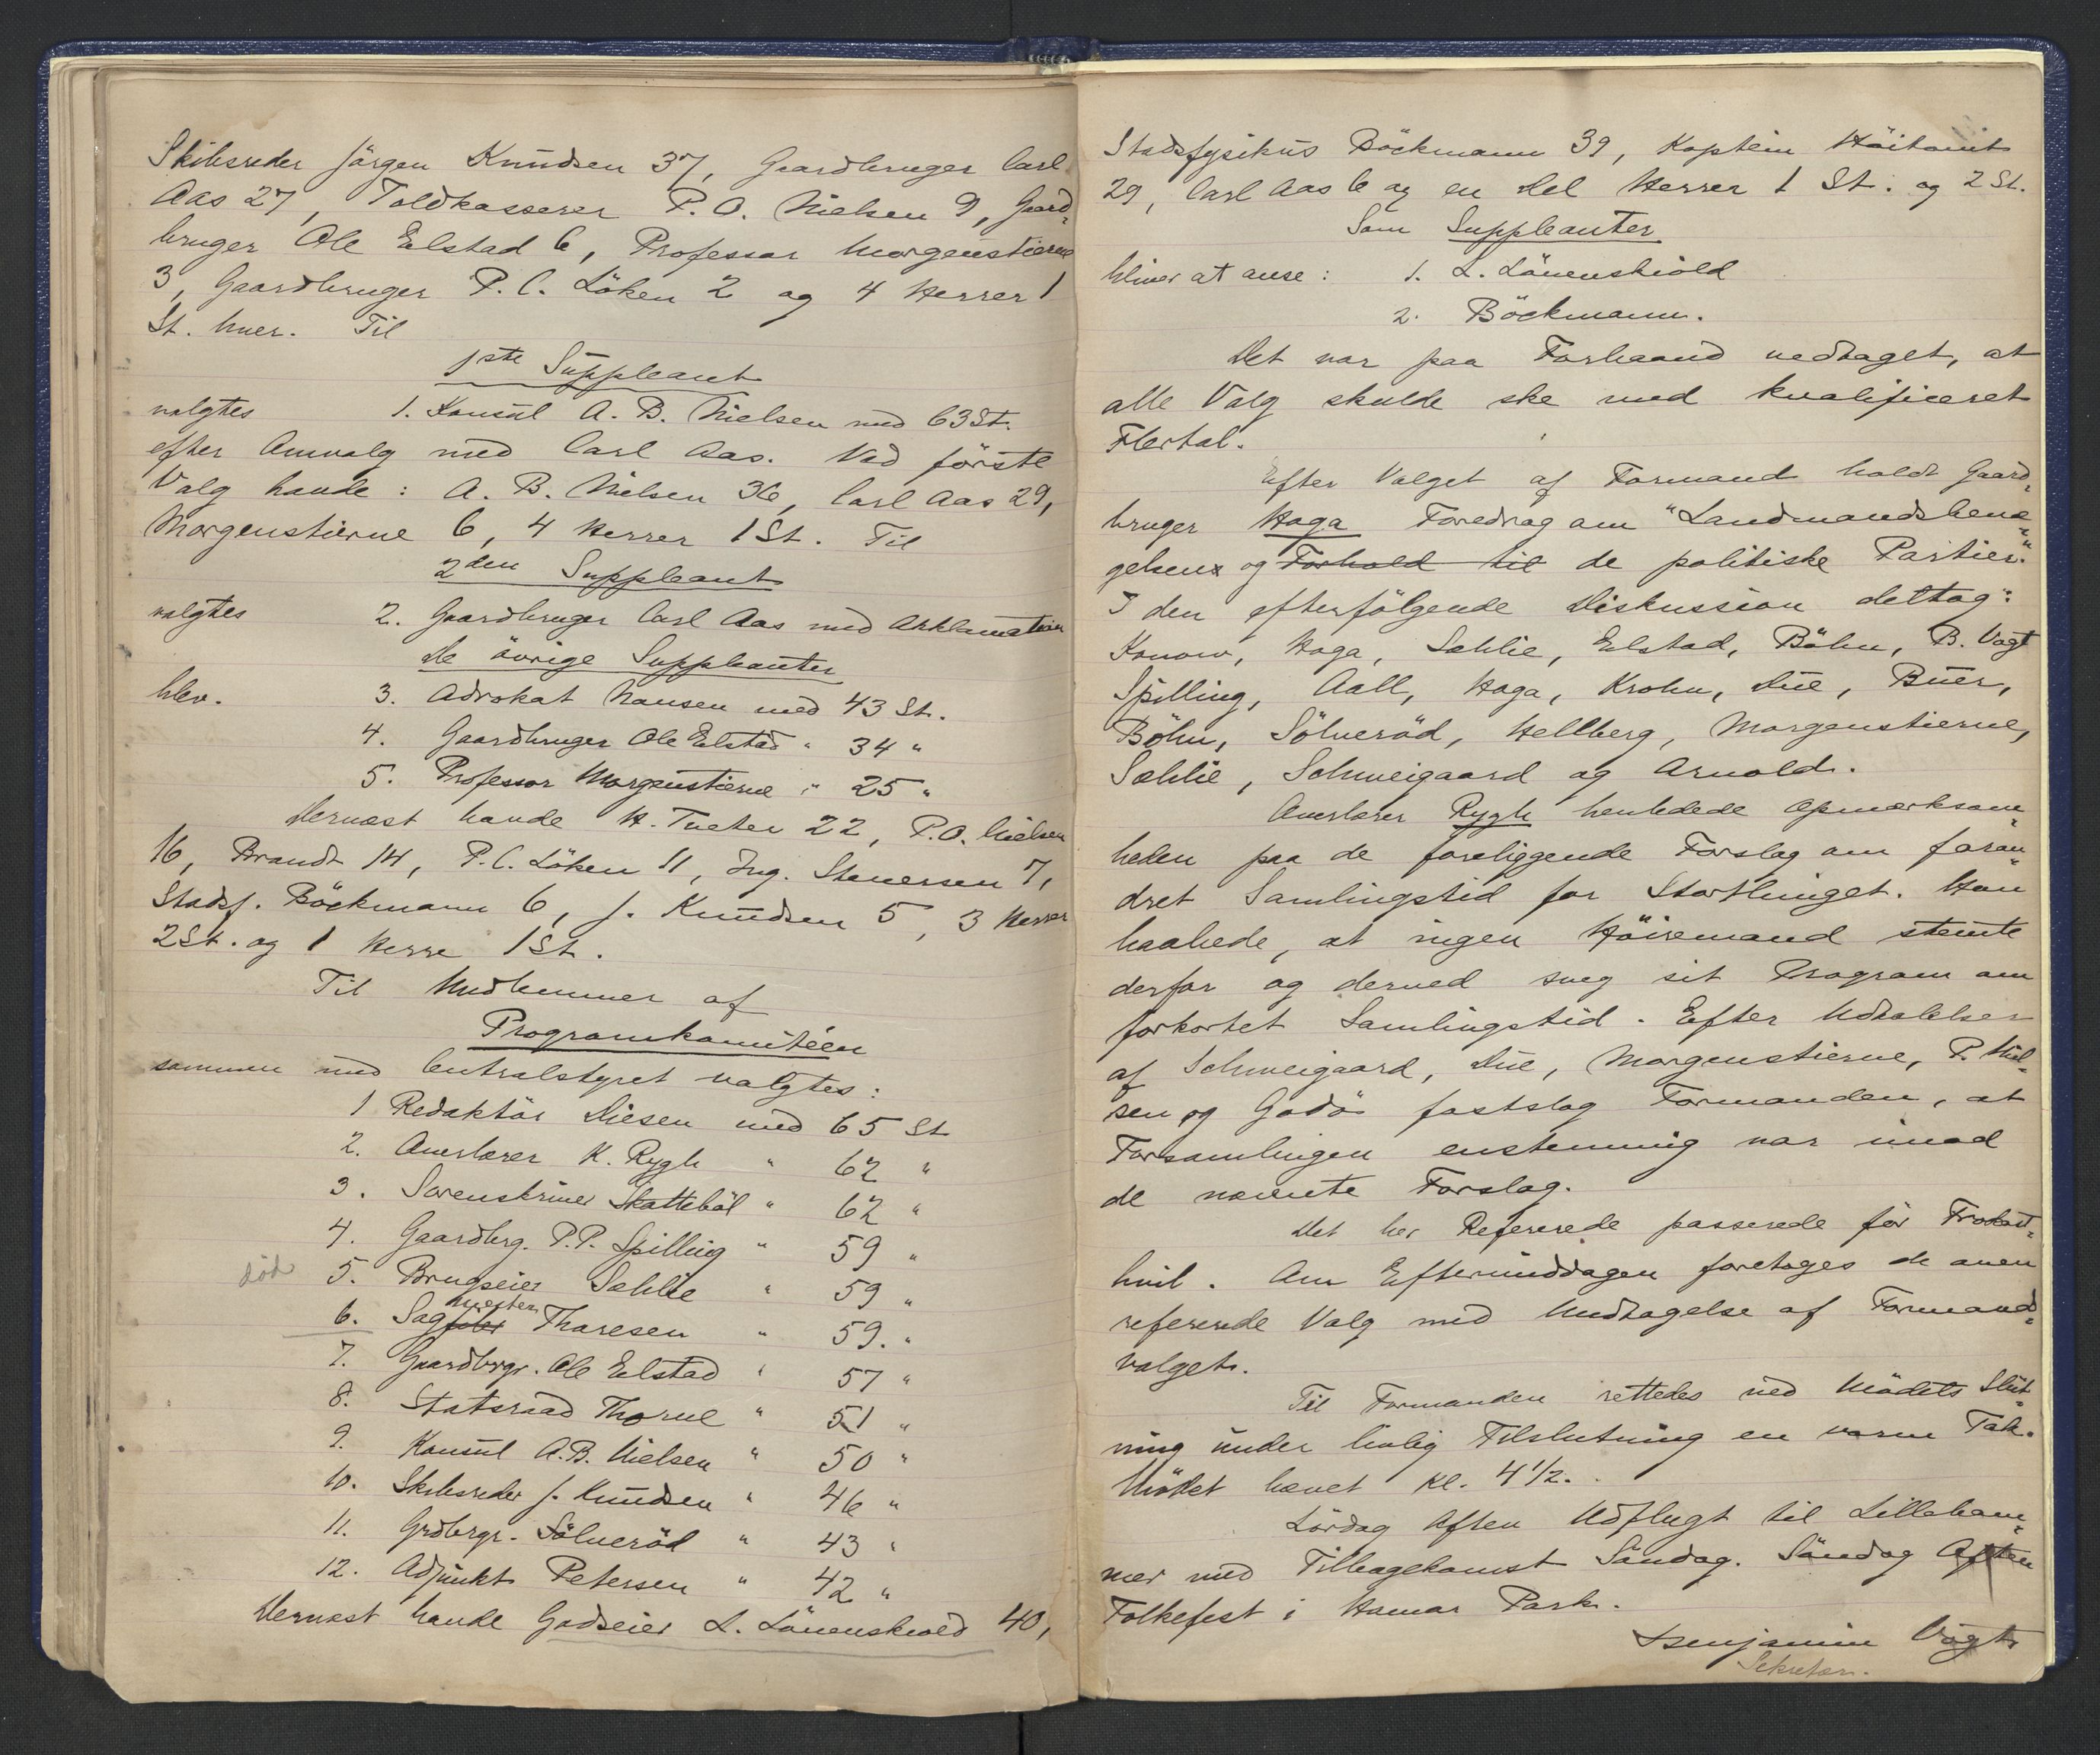 Skibsreder Jörgen Knudsen 37, Gaardbruger Carl
Aas 27, Toldkasserer P. O. Nielsen 9, Gaard-
bruger Ole Eilstad 6, Professor Morgenstierne
3, Gaardbruger P. C. Löken 2 og 4 Herrer 1
St. hver. Til
1ste Suppleant
valgtes 1. Konsul A. B. Nielsen med 63 St.
efter Omvalg med Carl Aas. Ved förste
Valg havde: A. B. Nielsen 36, Carl Aas 29,
Morgenstierne 6, 4 Herrer 1 St. Til
2den Suppleant
valgtes 2. Gaardbruger Carl Aas med Akklamation
De övrige Suppleanter
blev. 3. Advokat Nansen med 43 St.
4. Gaardbruger Ole Eilstad " 34 "
5. Professor Morgenstierne " 25 "
Dernæst havde H. Tveter 22, P. O. Nielsen
16, Brandt 14, P. C. Löken 11, Ing. Stenersen 7,
Stadsf. Böckmann 6, J. Knudsen 5, 3 Herrer
2 St. og 1 Herre 1 St.
Til Medlemmer af
Programkomitéen
sammen med Centralstyret valgtes:
1 Redaktör Diesen med 65 St
2. Overlærer K. Rygh " 62 "
3. Sorenskriver Skatteböl " 62 "
4. Gaardbrg. P. P. Spilling " 59 "
död 5. Brugseier Sæhlie " 59 "
6. Sagfører mester Thoresen " 59. "
7. Gaardbrgr. Ole Eilstad " 57 "
8. Statsraad Thorne " 51 "
9. Konsul A. B. Nielsen " 50 "
10. Skibsreder J. Knudsen " 46 "
11. Grdbrgr. Sölveröd " 43 "
12. Adjunkt Petersen " 42 "
Dernæst havde Godseier L. Lövenskiold 40,
Stadsfysikus Böckmann 39, Kaptein Höitomt
29, Carl Aas 6 og en Del Herrer 1 St. og 2 St.
Som Suppleanter
bliver at anse: 1. L. Lövenskiold
2. Böckmann.
Det var paa Forhaand vedtaget, at
alle Valg skulde ske med kvalificeret
Flertal.
Efter Valget af Formand holdt Gaard-
bruger Haga Foredrag om "Landmandsbevæ-
gelsen og Forhold til de politiske Partier."
I den efterfölgende Diskussion deltog:
Konow, Haga, Sæhlie, Eilstad, Böhn, B. Vogt
Spilling, Aall, Haga, Krohn, Due, Buer,
Böhn, Sölveröd, Hellberg, Morgenstierne,
Sæhlie, Schweigaard og Arnold.
Overlærer Rygh henledede Opmærksom-
heden paa de foreliggende Forslag om foran-
dret Samlingstid for Storthinget. Han
haabede, at ingen Höiremand stemte
derfor og derved sveg sit Program om
forkortet Samlingstid. Efter Udtalelser
af Schweigaard, Due, Morgenstierne, P. Niel-
sen og Godö fastslog Formanden, at
Forsamlingen enstemmig var imod
de nævnte Forslag.
Det her Refererede passerede för Frokost-
hvil. Om Eftermiddagen foretoges de oven
refererede Valg med Undtagelse af Formand-
valget.
Til Formanden rettedes ved Mödets Slut-
ning under livlig Tilslutning en varm Tak.
Mödet hævet Kl. 4 1/2.
Lördag Aften Udflugt til Lilleham-
mer med Tilbagekomst Söndag. Söndag Aften
Folkefest i Hamar Park.
Benjamin Vogt
Sekretær.